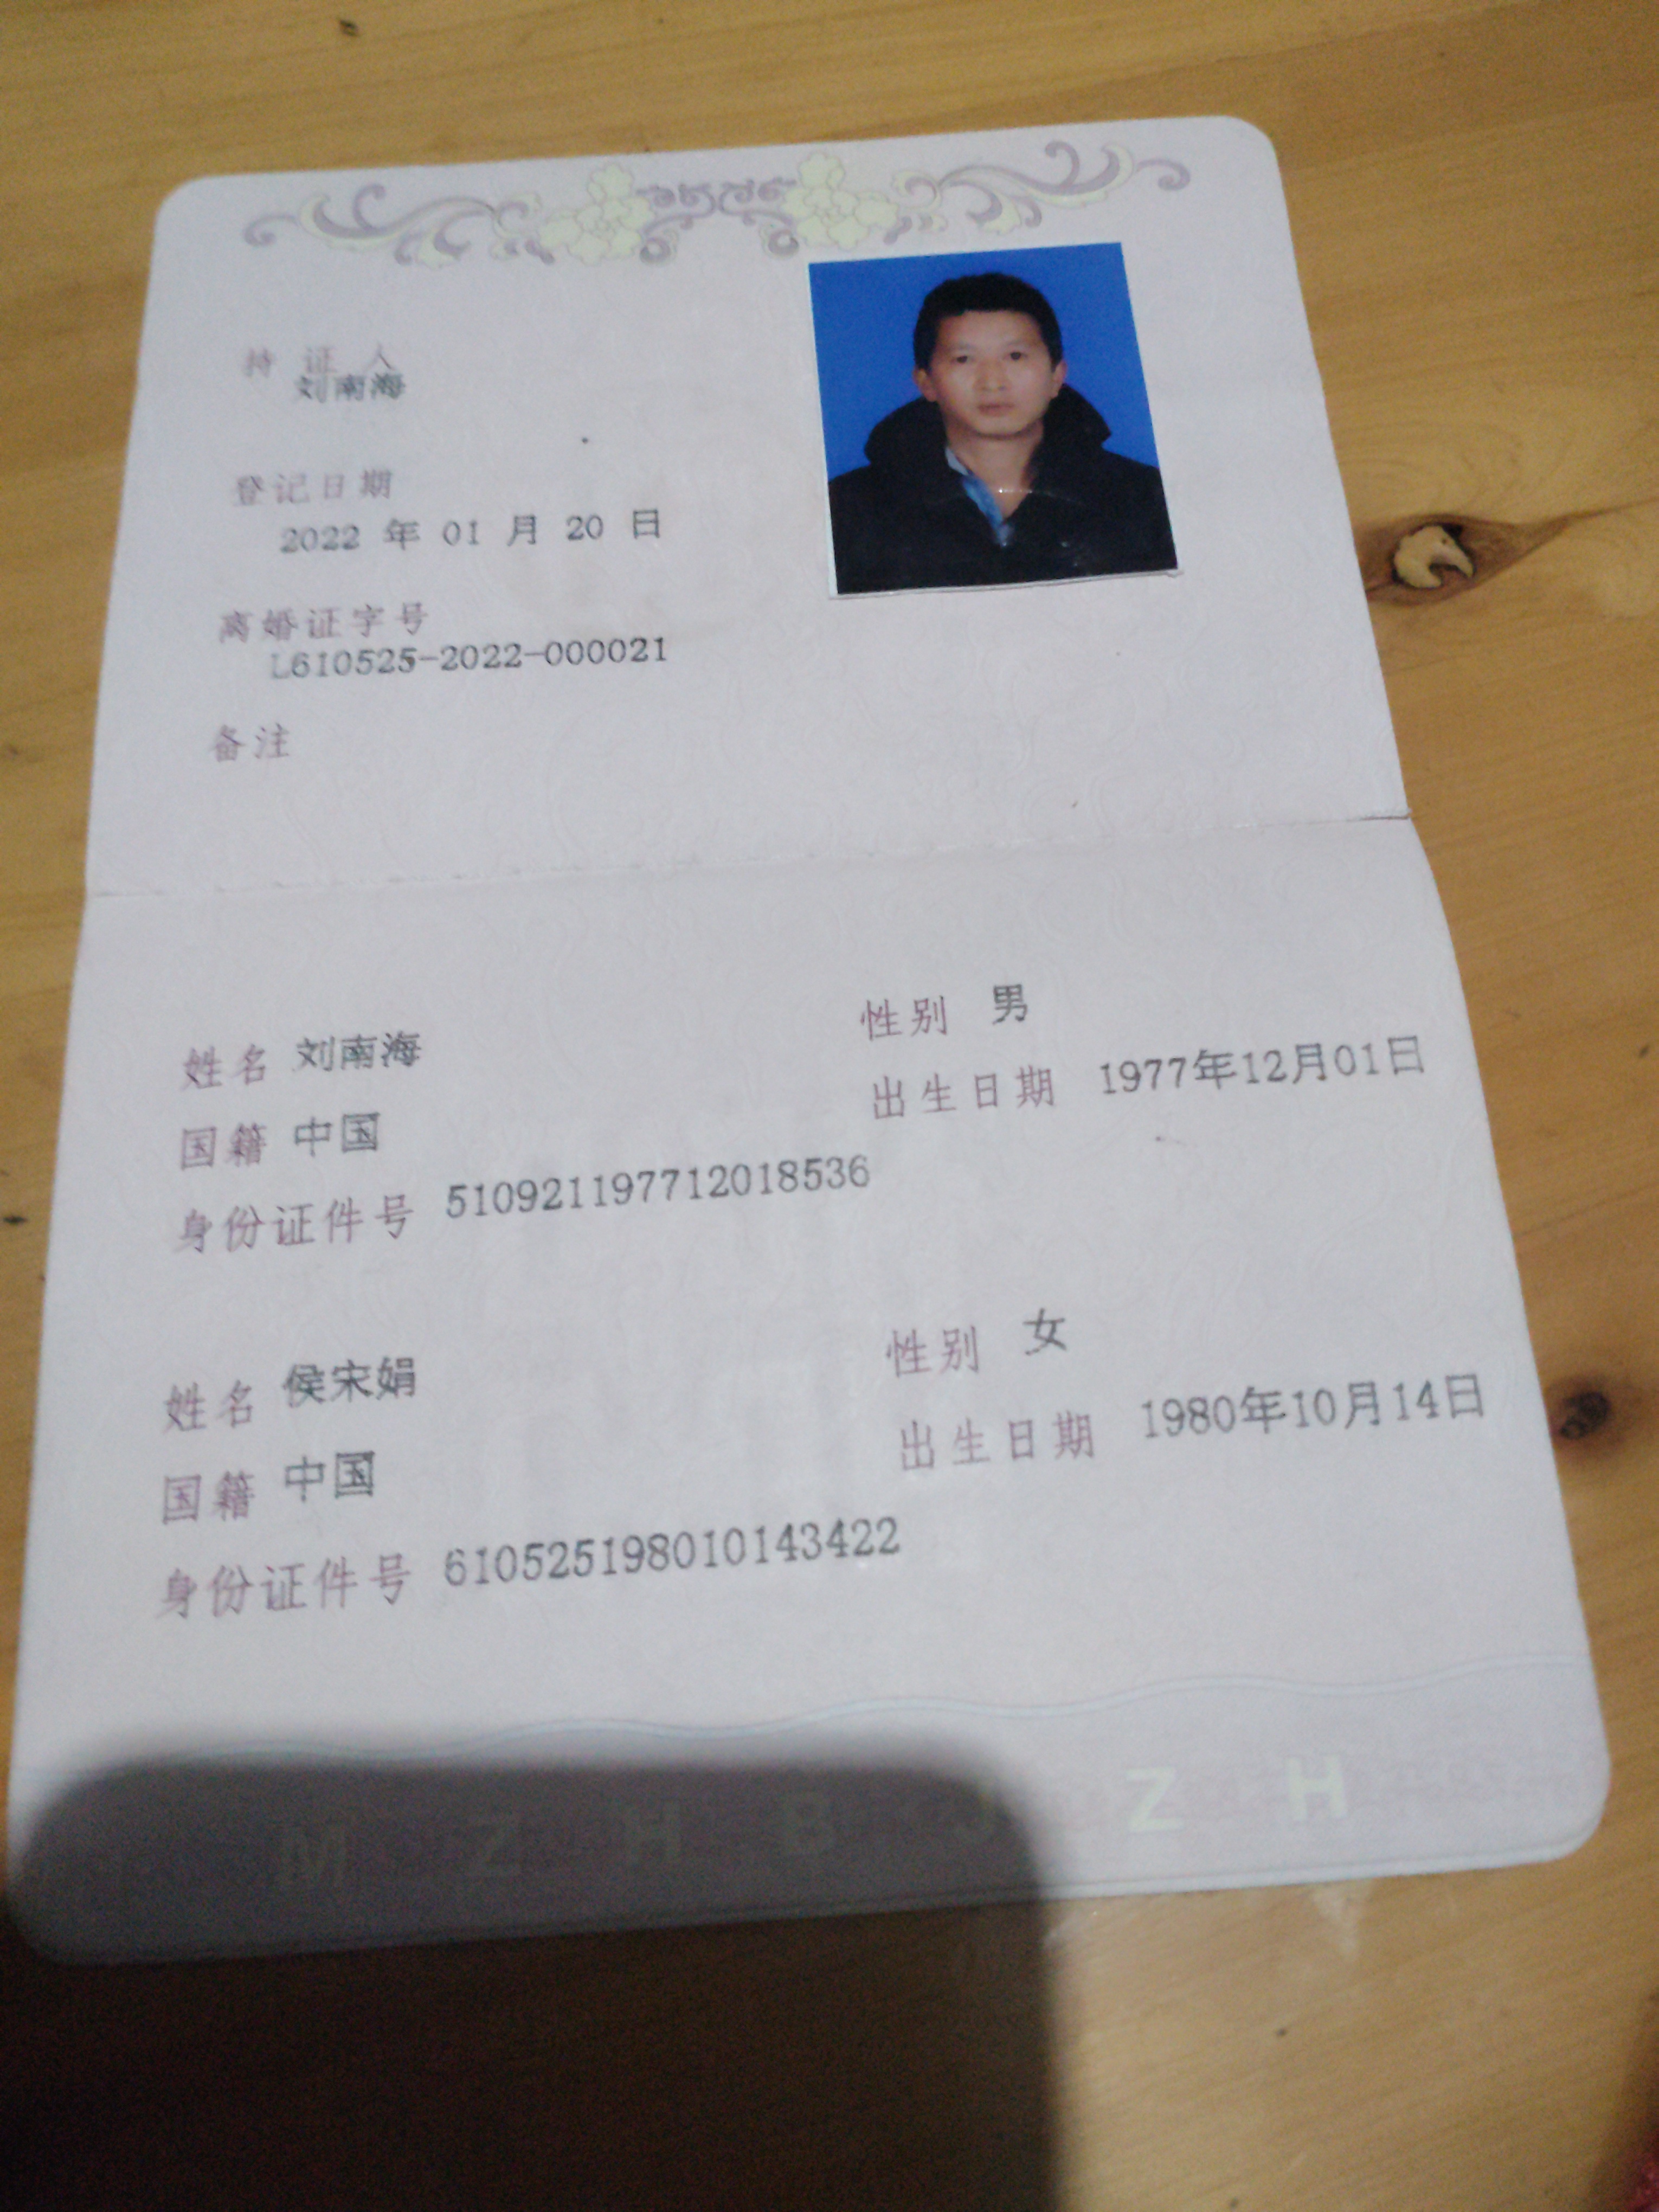 持证人
刘南海
登记日期
2022 年 01 月 20 日
离婚证字号
L610525-2022-000021
备注
姓名 刘南海 性别 男
国籍 中国 出生日期 1977年12月01日
身份证件号 510921197712018536
姓名 侯宋娟 性别 女
国籍 中国 出生日期 1980年10月14日
身份证件号 610525198010143422
M Z H B J Z H